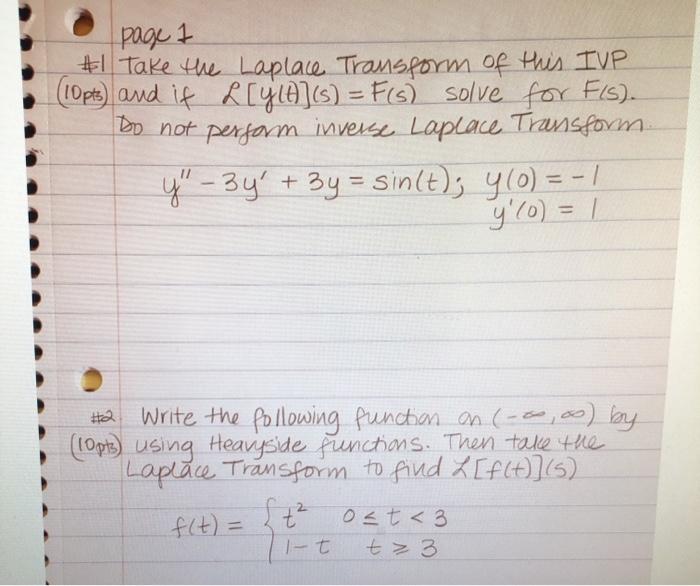 page 1
#1 Take the Laplace Transform of this IVP
(10pts) and if ℒ[y(t)](s) = F(s) solve for F(s).
Do not perform inverse Laplace Transform.
y'' - 3y' + 3y = sin(t); y(0) = -1
y'(0) = 1
#2 Write the following function on (-∞, ∞) by
(10pts) using Heavyside functions. Then take the
Laplace Transform to find ℒ[f(t)](s)
f(t) = { t² 0 ≤ t < 3
1-t t ≥ 3